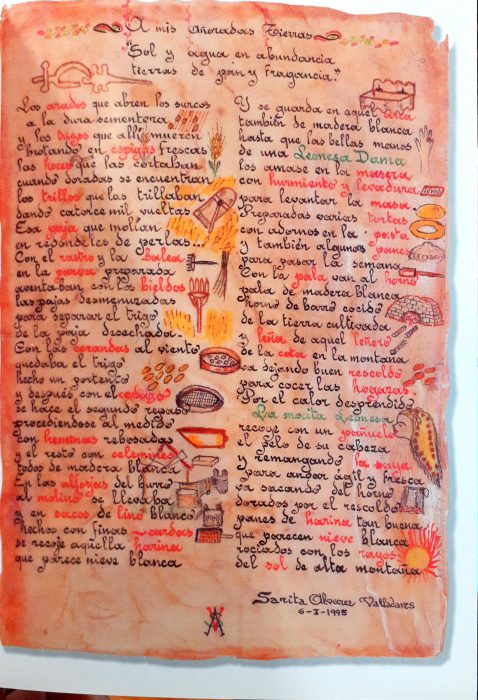 A mis Añoradas Tierras
"Sol y agua en abundancia
tierras de pan y fragancia."
Los arados que abren los surcos
a la dura sementera
y los trigos que allí mueren
brotando en espigas frescas
las hoces que las cortaban
cuando doradas se encuentran
los trillos que las trillaban
dando catorce mil vueltas
Esa paja que mollan
en redondeles de perlas...
Con el rastro y la balea
en la parva preparada
aventaban con los bieldos
las pajas desmenuzadas
para separar el trigo
de la paja desechada.
Con las zarandas al viento
quedaba el trigo
hecho un portento
y después con el cebazo
se hace el segundo repaso
procediendose al medido
Con heminas rebosados
y el resto con celemines
todos de madera blanca
En las alforjas del burro
al molino se llevaba
y en sacos de lino blanco
hechos con finas cardas
se recoje aquella harina
que parece nieve blanca
Y se guarda en aquel arca
también de madera blanca
hasta que las bellas manos
de una Leonesa Dama
los amase en la masera
con hurmiento y levadura
para levantar la masa.
Preparadas varias tortas
con adornos en la pasta
y también algunos panes
para pasar la semana
Con la pala van al horno
pala de madera blanca
horno de barro cocido
de la tierra cultivada
y leña de aquel leñero
de la cota en la montaña
va dejando buen rescoldo
para cocer las hogazas.
Por el calor desprendido
La mocita Leonesa
recoje con un pañuelo
el pelo de su cabeza
y remangando la saya
para andar ágil y fresca
va sacando del horno
dorados por el rescoldo
panes de harina tan buena
que parecen nieve blanca
rociados con los rayos
del sol de alta montaña
Sarita Alvarez Valladares
6-I-1995